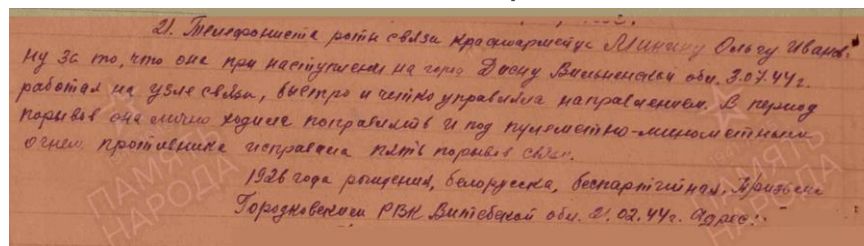 21. Телефониста роты связи красноармейца Минину Ольгу Иванов-
ну за то, что она при наступлении на город Дисну Вильненской обл. 3.07.44г.
работая на узле связи, быстро и четко управляла направлением. В период
порывов она лично ходила поправлять и под пулеметно-минометным
огнем противника исправила пять порывов связи.
1926 года рождения, белорусска, беспартийная. Призвана
Городковским РВК Витебской обл. 21.02.44г. Адрес:
ПАМЯТЬ
НАРОДА
ПАМЯТЬ
НАРОДА